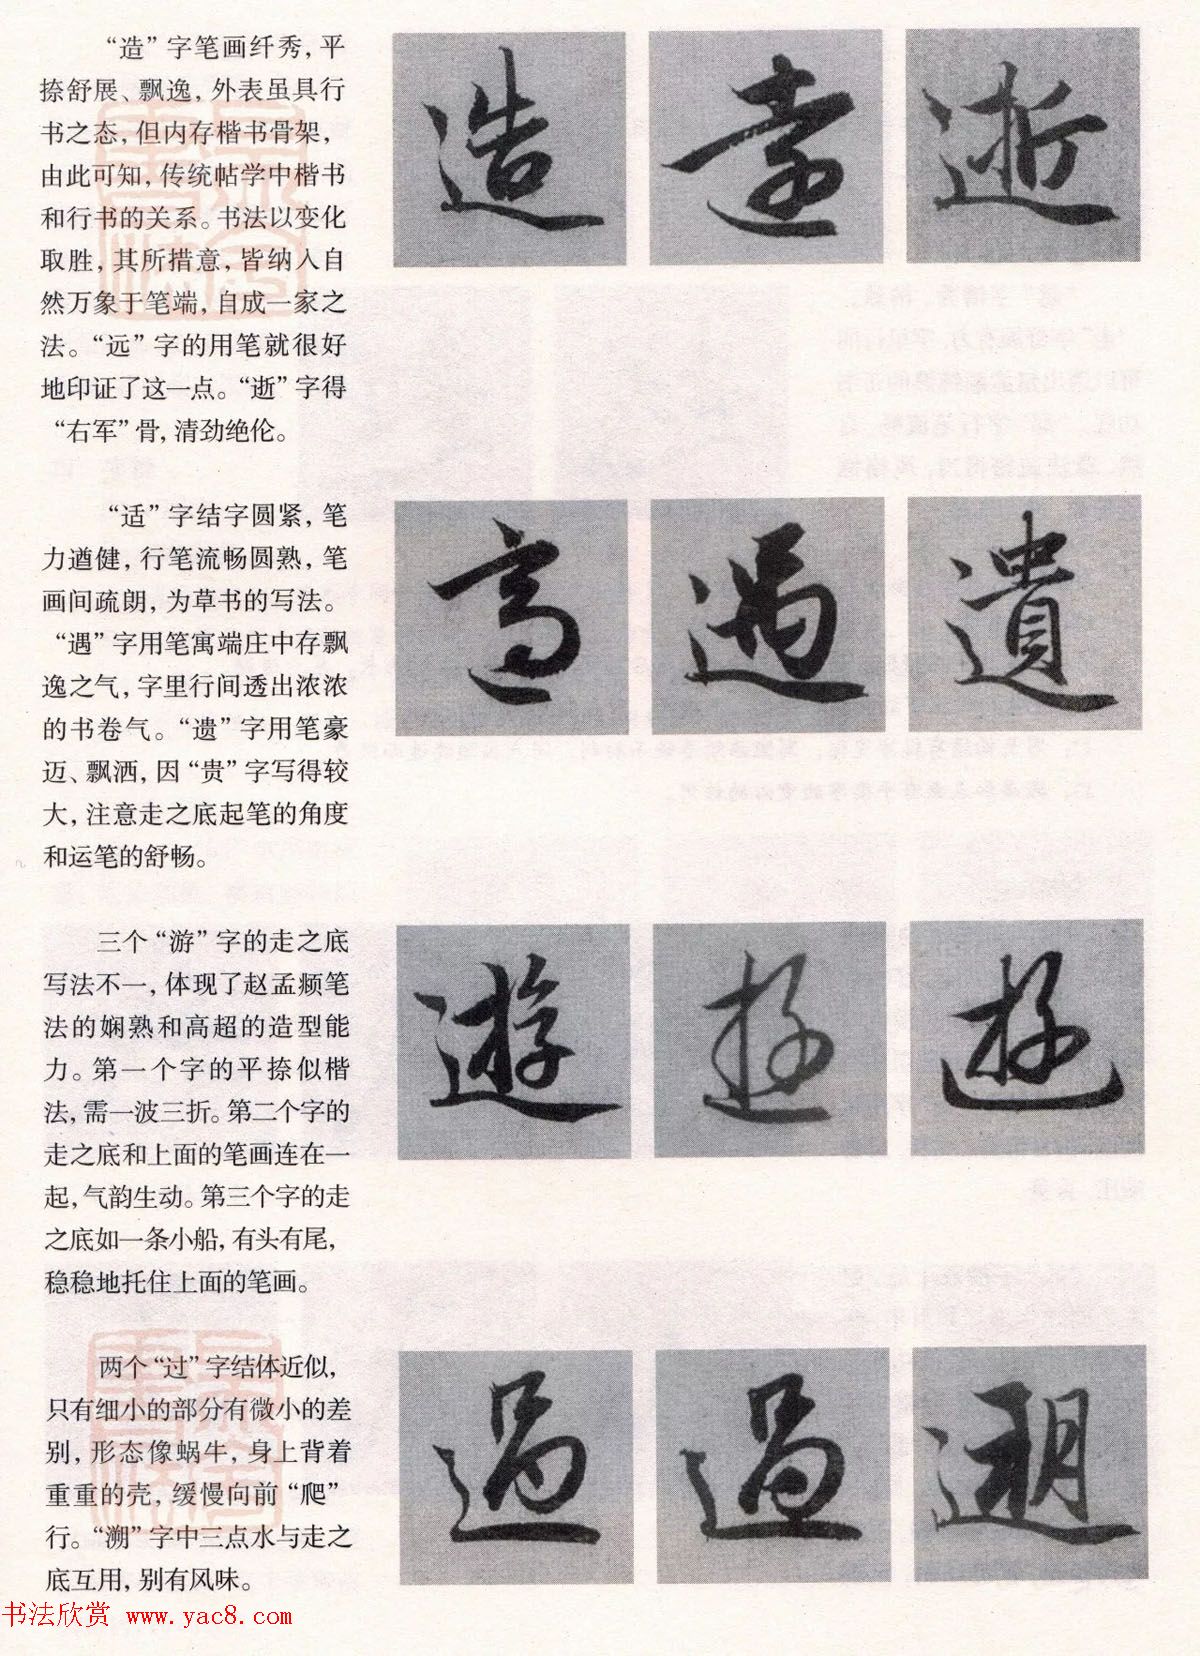 “造”字笔画纤秀，平
捺舒展、飘逸，外表虽具行
书之态，但内存楷书骨架，
由此可知，传统帖学中楷书
和行书的关系。书法以变化
取胜，其所措意，皆纳入自
然万象于笔端，自成一家之
法。“远”字的用笔就很好
地印证了这一点。“逝”字得
“右军”骨，清劲绝伦。
造 遠 逝
“适”字结字圆紧，笔
力遒健，行笔流畅圆熟，笔
画间疏朗，为草书的写法。
“遇”字用笔寓端庄中存飘
逸之气，字里行间透出浓浓
的书卷气。“遗”字用笔豪
迈、飘洒，因“贵”字写得较
大，注意走之底起笔的角度
和运笔的舒畅。
適 遇 遺
三个“游”字的走之底
写法不一，体现了赵孟頫笔
法的娴熟和高超的造型能
力。第一个字的平捺似楷
法，需一波三折。第二个字的
走之底和上面的笔画连在一
起，气韵生动。第三个字的走
之底如一条小船，有头有尾，
稳稳地托住上面的笔画。
遊 遊 遊
两个“过”字结体近似，
只有细小的部分有微小的差
别，形态像蜗牛，身上背着
重重的壳，缓慢向前“爬”
行。“溯”字中三点水与走之
底互用，别有风味。
過 過 遡
书法欣赏 www.yac8.com